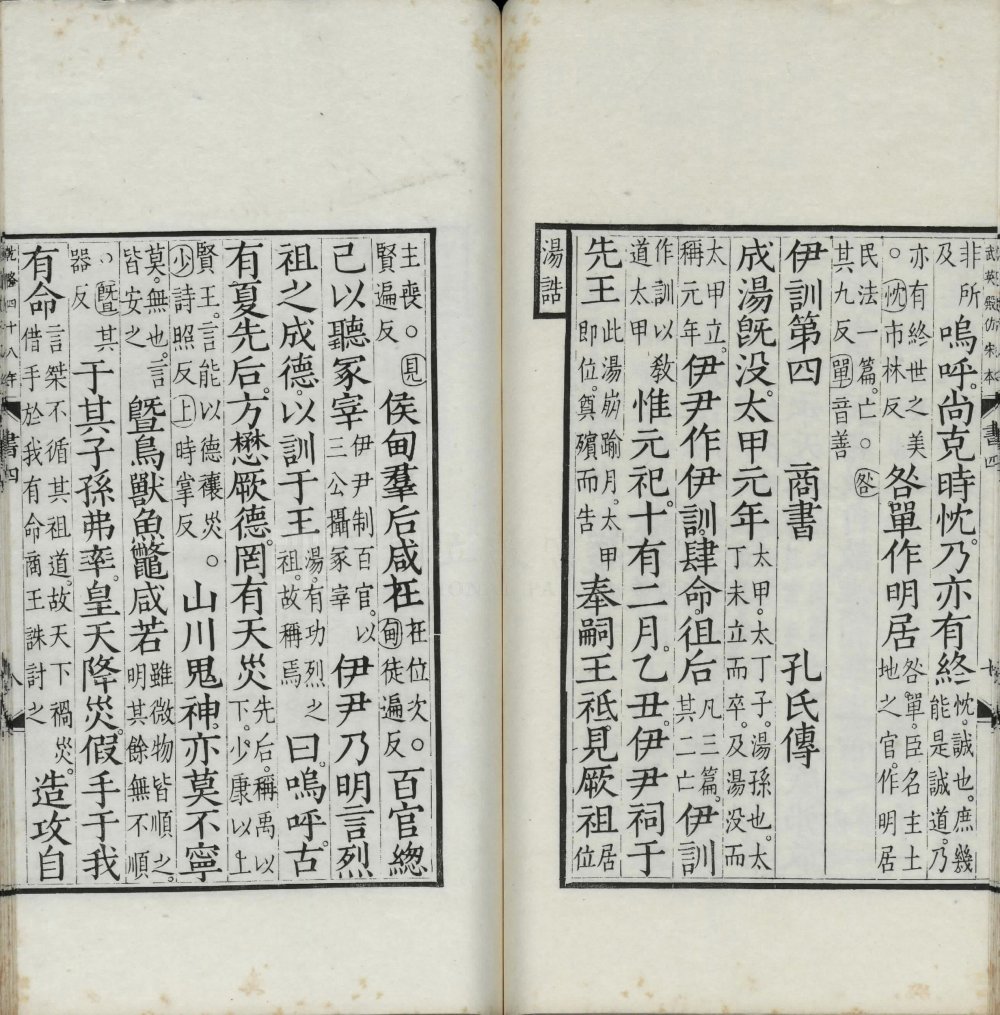 武英殿仿宋本 書四
非所及 嗚呼。尚克時忱。乃亦有終 忱。誠也。庶幾能是誠道。乃
亦有終世之美。○忱市林反 咎單作明居 咎單。臣名。主土地之官。作明居
民法一篇。亡。○咎其九反單音善
伊訓第四 商書 孔氏傳
成湯旣没。太甲元年 太甲。太丁子。湯孫也。太丁未立而卒。及湯没而
太甲立。稱元年 伊尹作伊訓。肆命。徂后 凡三篇。其二亡 伊訓
作訓以教道太甲 惟元祀。十有二月。乙丑。伊尹祠于
先王 此湯崩踰月。太甲即位。奠殯而告 奉嗣王祗見厥祖 居位
湯誥
主喪。○見賢遍反 侯甸羣后咸在 在位次。○甸徒遍反 百官緫
己以聽冢宰 伊尹制百官。以三公攝冢宰 伊尹乃明言烈
祖之成德。以訓于王 湯。有功烈之祖。故稱焉 曰。嗚呼。古
有夏先后。方懋厥德。罔有天災 先后。稱禹以下。少康以上
賢王。言能以德禳災。○少詩照反上時掌反 山川鬼神。亦莫不寧
莫。無也。言皆安之 曁鳥獸魚鼈咸若 雖微物皆順之。明其餘無不順
○曁其器反 于其子孫弗率。皇天降災。假手于我
有命 言桀不循其祖道。故天下禍災。借手於我有命商王誅討之 造攻自
乾隆四十八年 書四 八